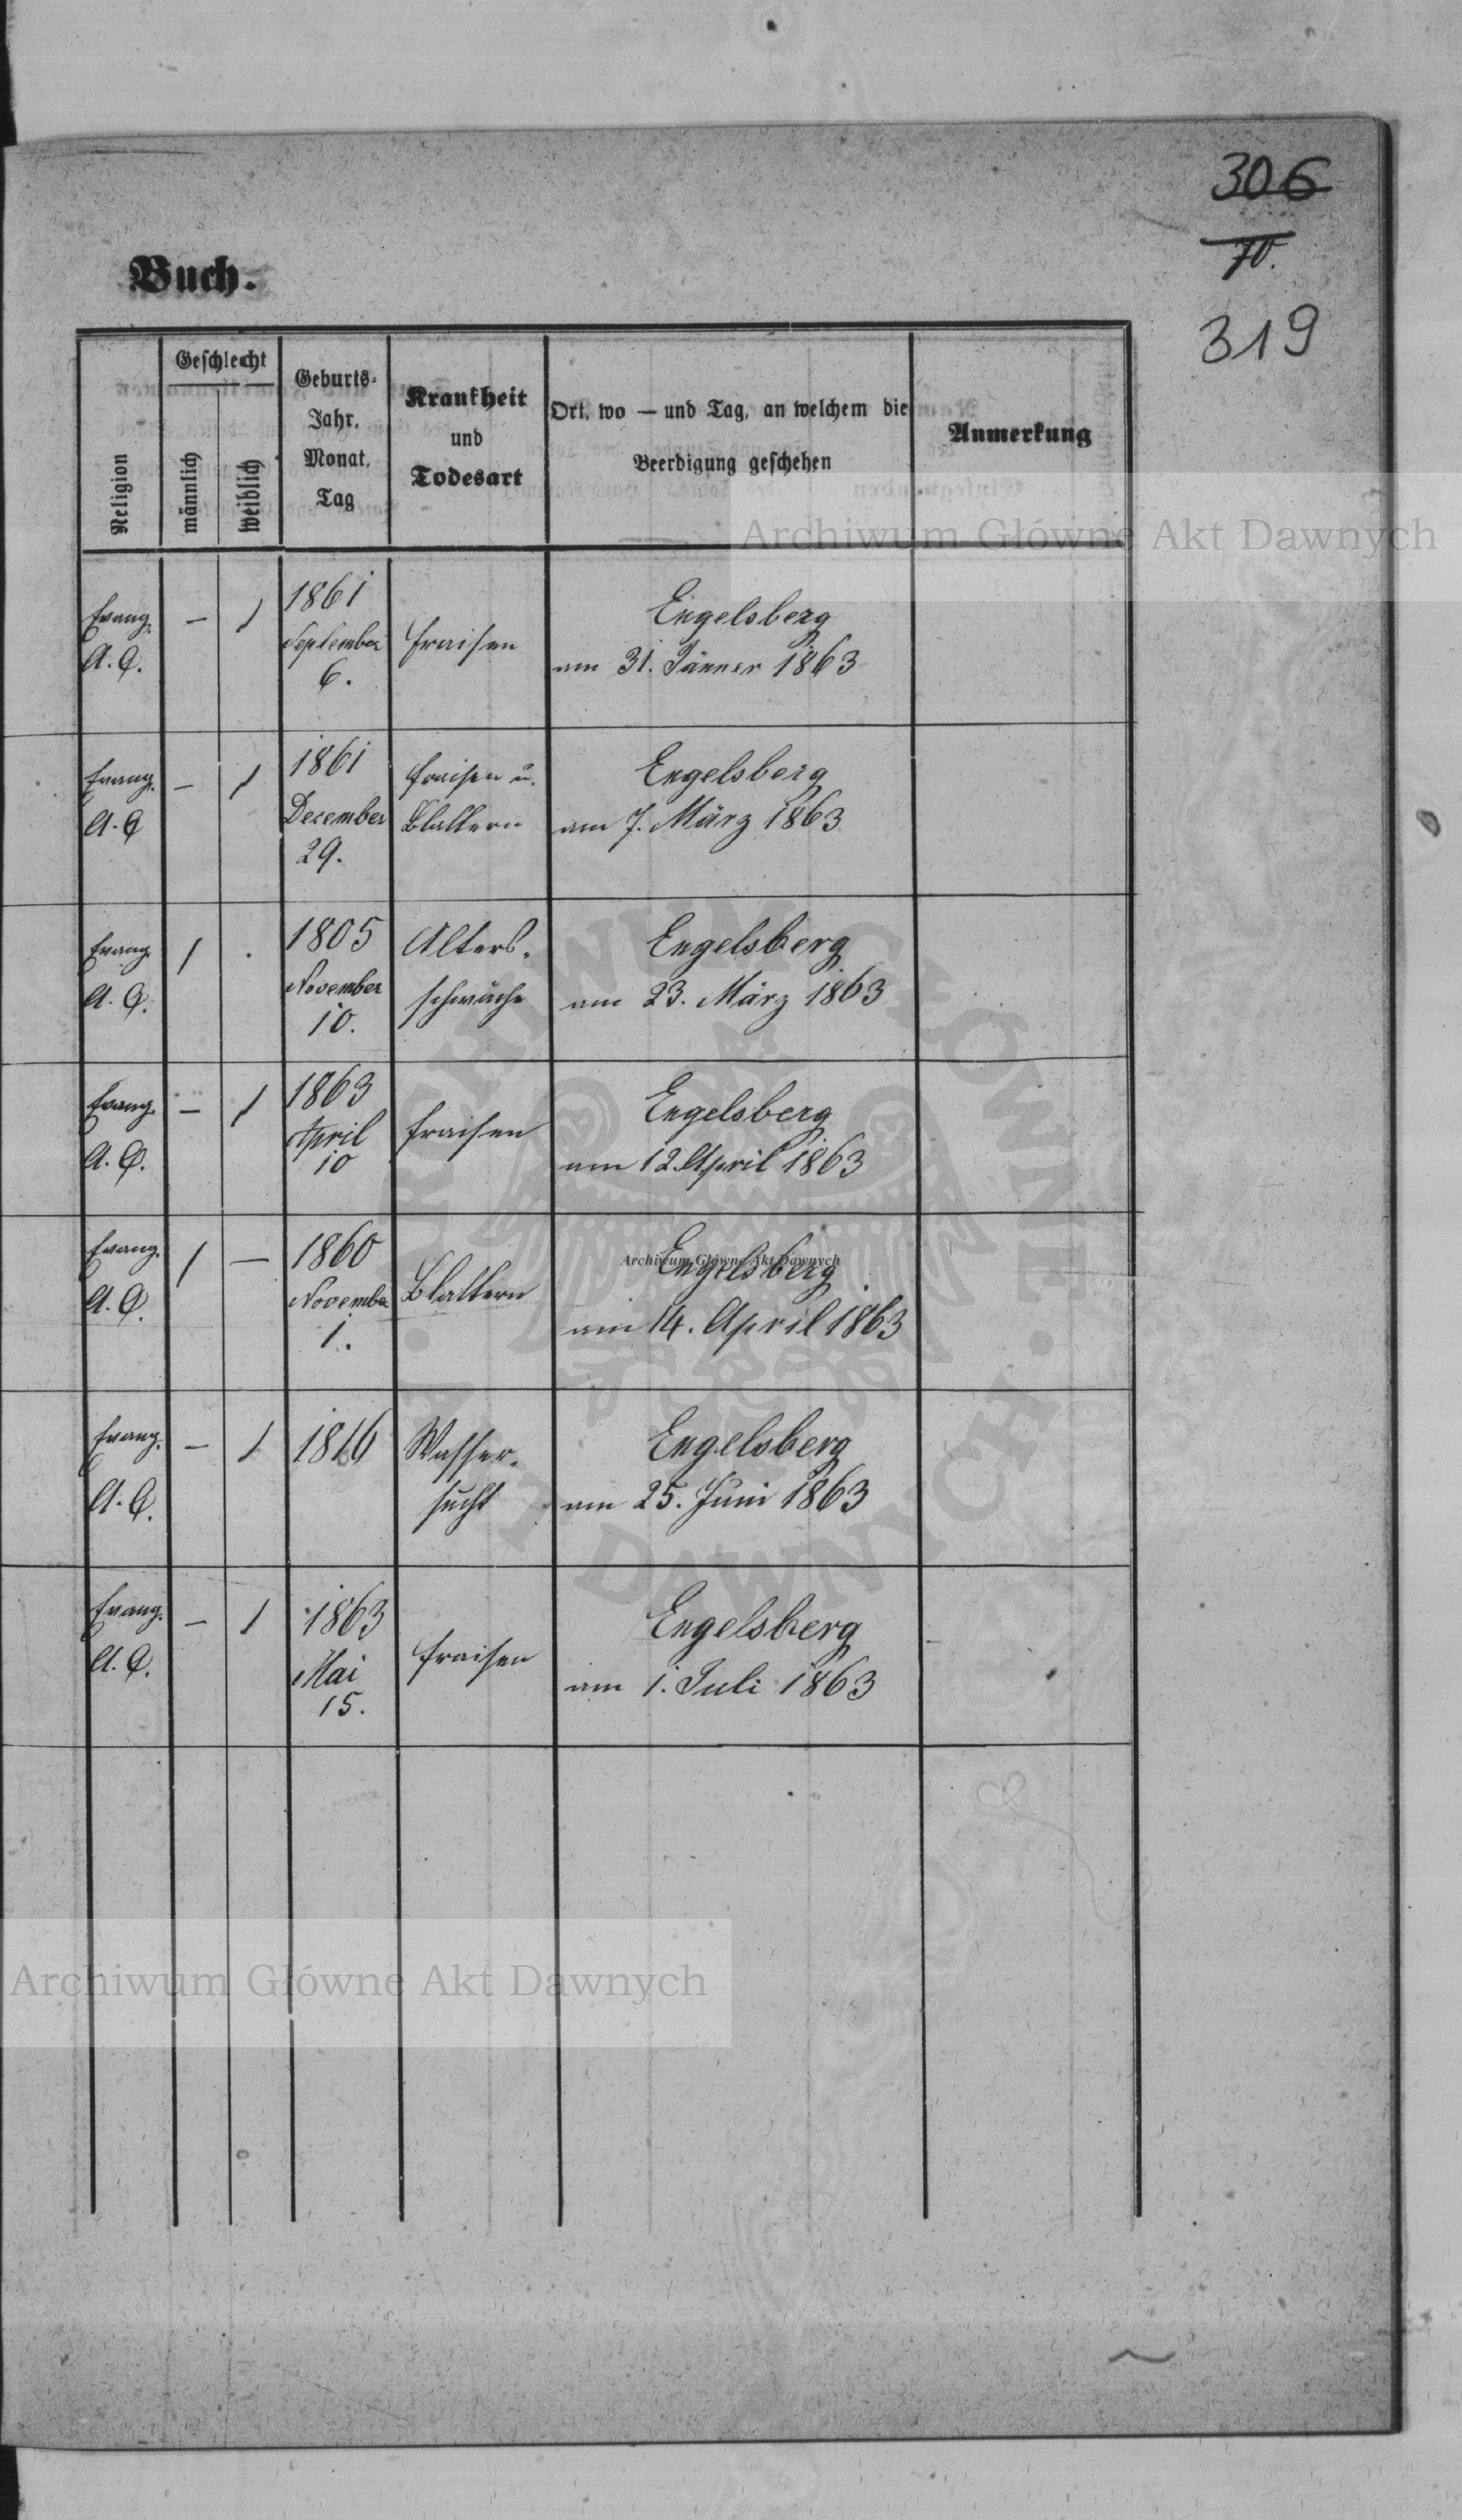 306
70.
319
Buch.
Religion
Geschlecht
männlich
weiblich
Geburts-
Jahr,
Monat,
Tag
Krankheit
und
Todesart
Ort, wo — und Tag, an welchem die
Beerdigung geschehen
Anmerkung
Archiwum Główne Akt Dawnych
Evang. — 1 1861 Engelsberg
A. C. September Fraisen am 31. Jänner 1863
6.
Evang. — 1 1861 Fraisen u. Engelsberg
A. C. Dezember Blattern am 7. März 1863
29.
Evang. 1 . 1805 Alters- Engelsberg
A. C. November schwäche am 23. März 1863
10.
Evang. — 1 1863 Engelsberg
A. C. April Fraisen am 12. April 1863
10
Evang. 1 — 1860 Engelsberg
Archiwum Główne Akt Dawnych
A. C. November Blattern am 14. April 1863
1.
Evang. — 1 1816 Wasser- Engelsberg
A. C. sucht am 25. Juni 1863
Evang. — 1 1863 Engelsberg
A. C. Mai Fraisen am 1. Juli 1863
15.
ARCHIWUM GŁÓWNE AKT DAWNYCH
Archiwum Główne Akt Dawnych